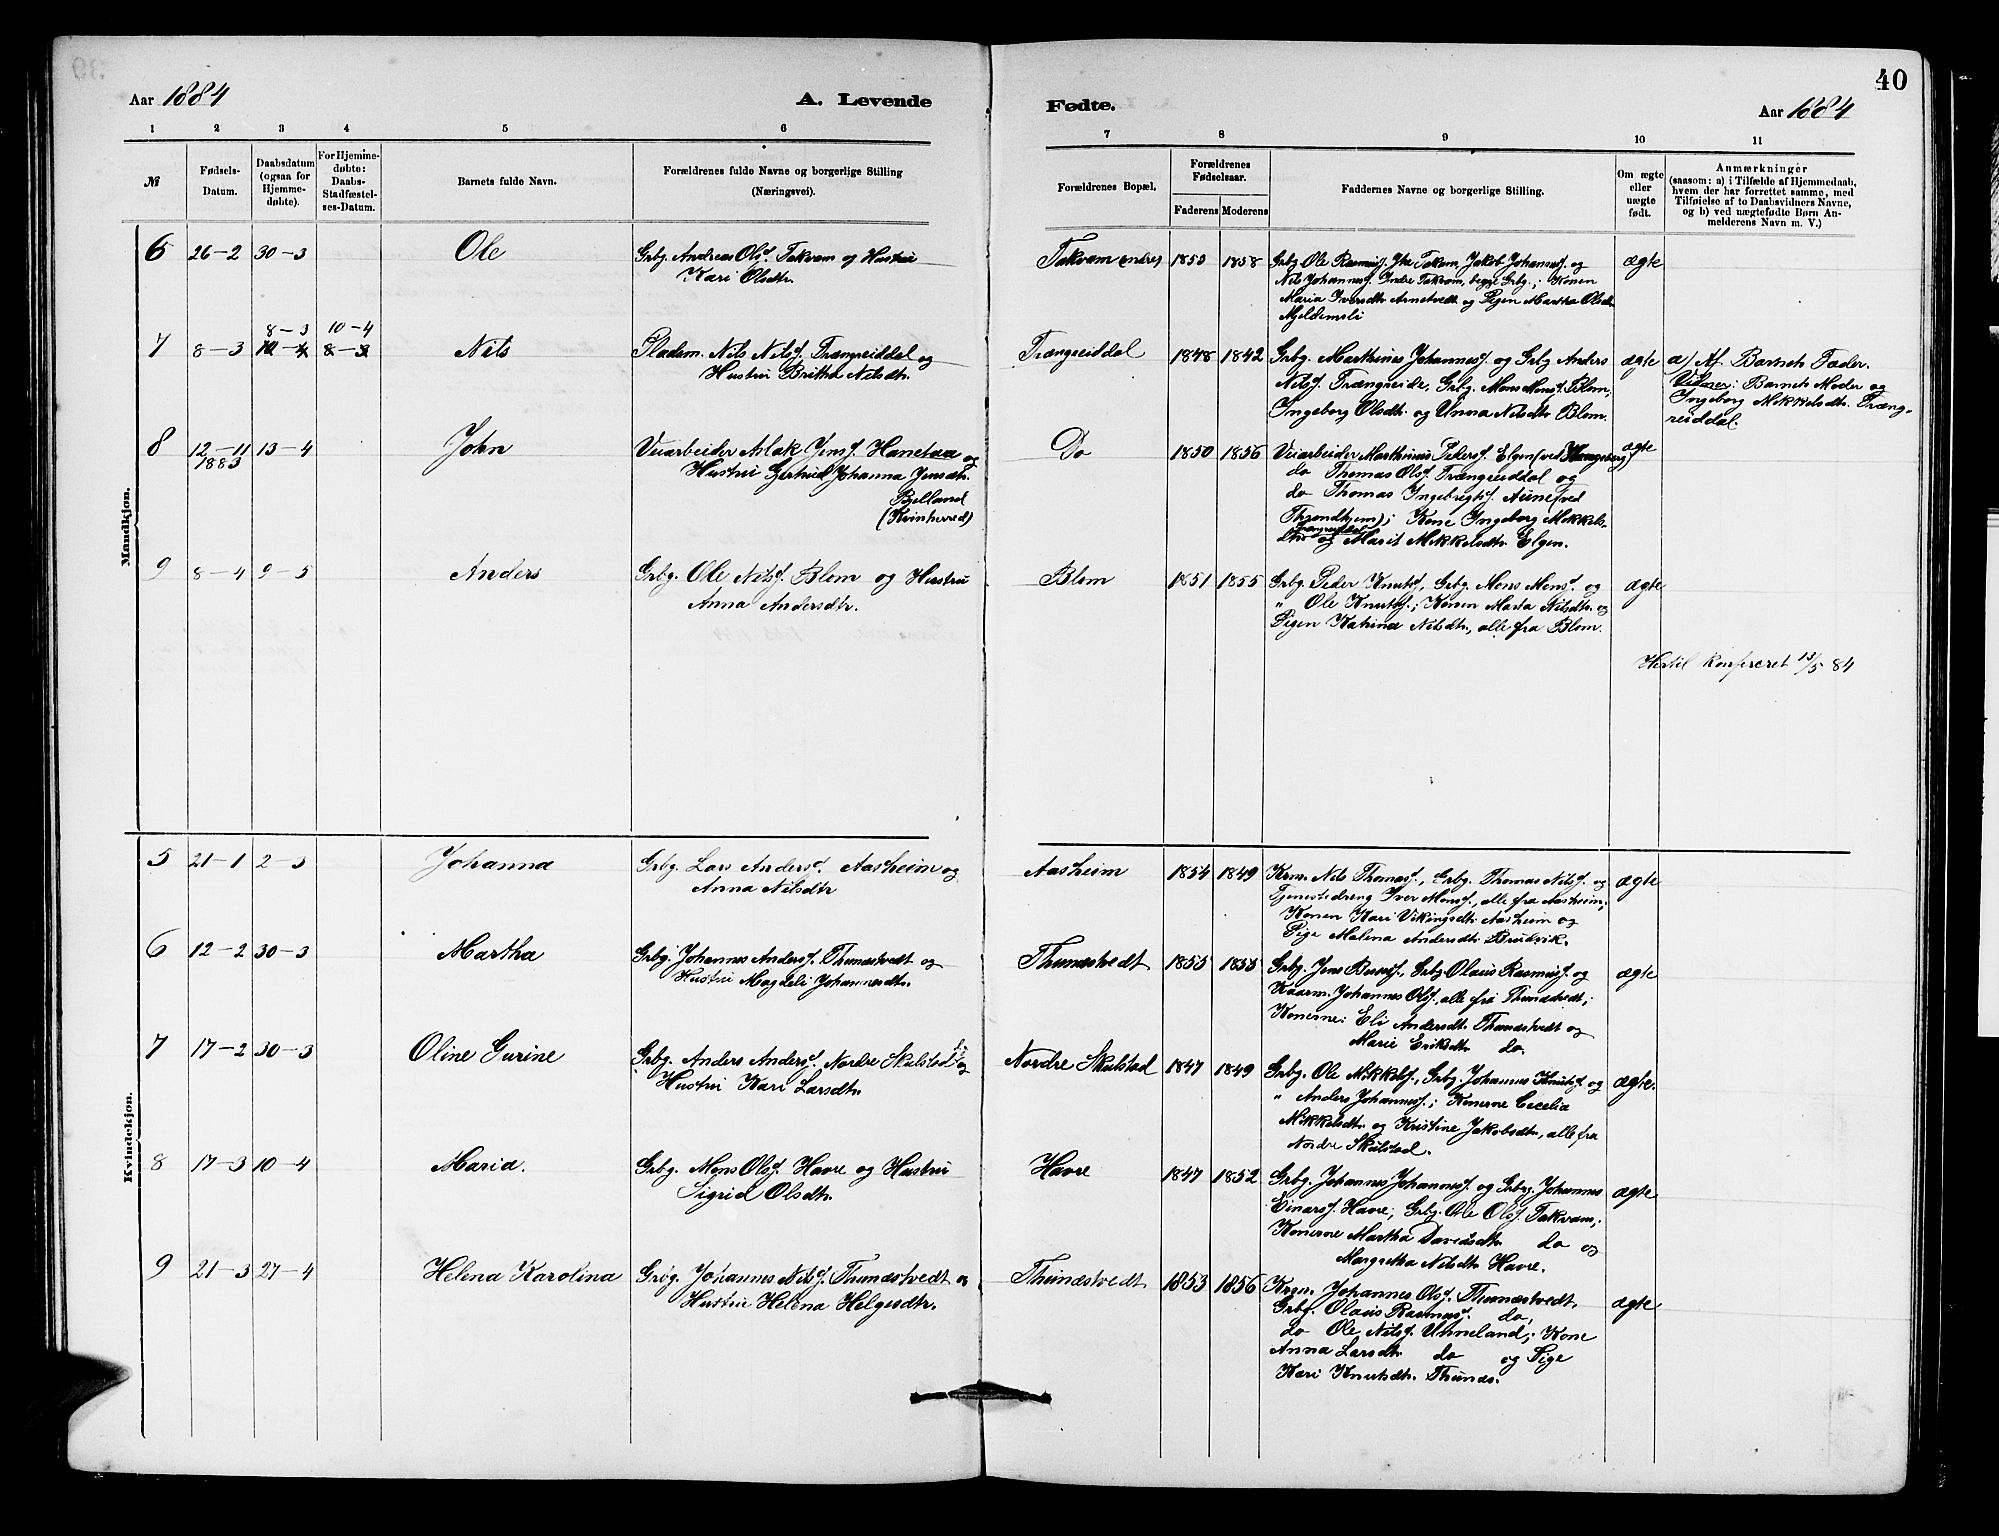 40
Aar 1884
A. Levende
Fødte.
Aar 1884
1 2 3 4 5 6 7 8 9 10 11
№
Fødsels-
Datum.
Daabsdatum
(ogsaa for
Hjemme-
døbte).
For Hjemme-
døbte:
Daabs-
Stadfæstel-
ses-Datum.
Barnets fulde Navn.
Forældrenes fulde Navne og borgerlige Stilling
(Næringsvei).
Forældrenes Bopæl,
Forældrenes
Fødselsaar.
Faderens Moderens
Faddernes Navne og borgerlige Stilling.
Om ægte
eller
uægte
født.
Anmærkninger
(saasom: a) i Tilfælde af Hjemmedaab,
hvem der har forrettet samme, med
Tilføielse af to Daabsvidners Navne,
og b) ved uægtefødte Børn An-
melderens Navn m. V.)
Mandkjøn.
6 26-2 30-3 Ole
Grbg. Andreas Olsd. Takvam og Hustru
Kari Olsdtr.
Takvam (indre) 1850 1858
Grbg. Ole Rasmusf. Takvam, Jakob Johannesf. og
Nils Johannesf. Indre Takvam, begge Grbg.; Konen
Maria Iversdtr. Arnetvedt og Pigen Martha Olsdtr.
Mjeldemsli
ægte
7 8-3 8-3 10-4 Nils
Pladsm. Nils Nilsf. Trængreiddal og
Hustru Britha Nilsdtr.
Trængreiddal 1848 1842
Grbg. Marthines Johannesf. og Grbg Anders
Nilsf. Trængreide, Grbg. Mons Monsf. Blom;
Ingeborg Olsdtr. og Unna Nilsdtr. Blom.
ægte
a) Af Barnets Fader.
Vidner: Barnets Moder og
Ingeborg Mikkelsdtr. Træng-
reiddal.
8 12-11 1883 13-4 John
Veiarbeider Aslak Jensf. Hanetaa og
Hustru Gjertrud Johanna Jensdtr.
Bjelland
(Kvinherred)
Do 1850 1856
Veiarbeider Marthinus Pedersf. Elgen (ved Kongsberg)
do Thomas Olsf. Trængreiddal og
do Thomas Ingebrigtsf. Aune (ved
Throndhjem); Kone Ingeborg Mikkels-
dtr. Trængreiddal og Marit Mikkelsdtr. Elgen.
ægte
9 8-4 9-5 Anders
Grbg. Ole Nilsf. Blom og Hustru
Anna Andersdtr.
Blom 1851 1855
Grbg. Peder Knutsf., Grbg Mons Monsf. og
" Ole Knutsf.; Konen Marta Nilsdtr. og
Pigen Katrina Nilsdtr., alle fra Blom.
ægte
Hertil konfereret 13/5 84
Kvindekjøn.
5 21-1 2-3 Johanna
Grbg. Lars Andersf. Aasheim og
Anna Nilsdtr
Aasheim 1854 1849
Krm. Nils Thomasf., Grbg. Thomas Nilsf. og
Tjenestedreng Iver Monsf., alle fra Aasheim;
Konen Kari Vikingsdtr. Aasheim og
Pige Malena Andersdtr. Brudvik.
ægte
6 12-2 30-3 Martha
Grbg. Johannes Andersf. Thunæstvedt og
Hustru Magdeli Johannesdtr.
Thunæstvedt 1855 1855
Grbg. Jens Bernsf., Grbg Olaus Rasmusf. og
Kaarm. Johannes Olsf., alle fra Thunæstvedt;
Konerne: Eli Andersdtr. Thunæstvedt og
Marie Eriksdtr. do.
ægte
7 17-2 30-3 Oline Gurine
Grbg. Anders Andersf. Nordre Skulstad og
Hustru Kari Larsdtr.
Nordre Skulstad 1847 1849
Grbg. Ole Mikkelsf., Grbg. Johannes Knutsf og
" Anders Johannesf.; Konerne Cecelia
Mikkelsdtr. og Kristine Jakobsdtr., alle fra
Nordre Skulstad.
ægte.
8 17-3 10-4 Maria.
Grbg. Mons Olsf. Havre og Hustru
Sigrid Olsdtr.
Havre 1847 1852
Grbg. Johannes Johannesf. og Grbg. Johannes
Einarsf. Havre; Grbg. Ole Olsf. Takvam;
Konerne Martha Davidsdtr. do og
Margretha Nilsdtr. Havre.
ægte
9 21-3 27-4 Helena Karolina
Grbg. Johannes Nilsf. Thunæstvedt og
Hustru Helena Helgesdtr.
Thunæstvedt 1853 1856
Krm. Johannes Olsf. Thunæstvedt,
Grbg. Olaus Rasmusf. do,
do Ole Nilsf. Unneland; Kone
Anna Larsdtr. do og Pige
Kari Knutsdtr. Thunæs.
ægte